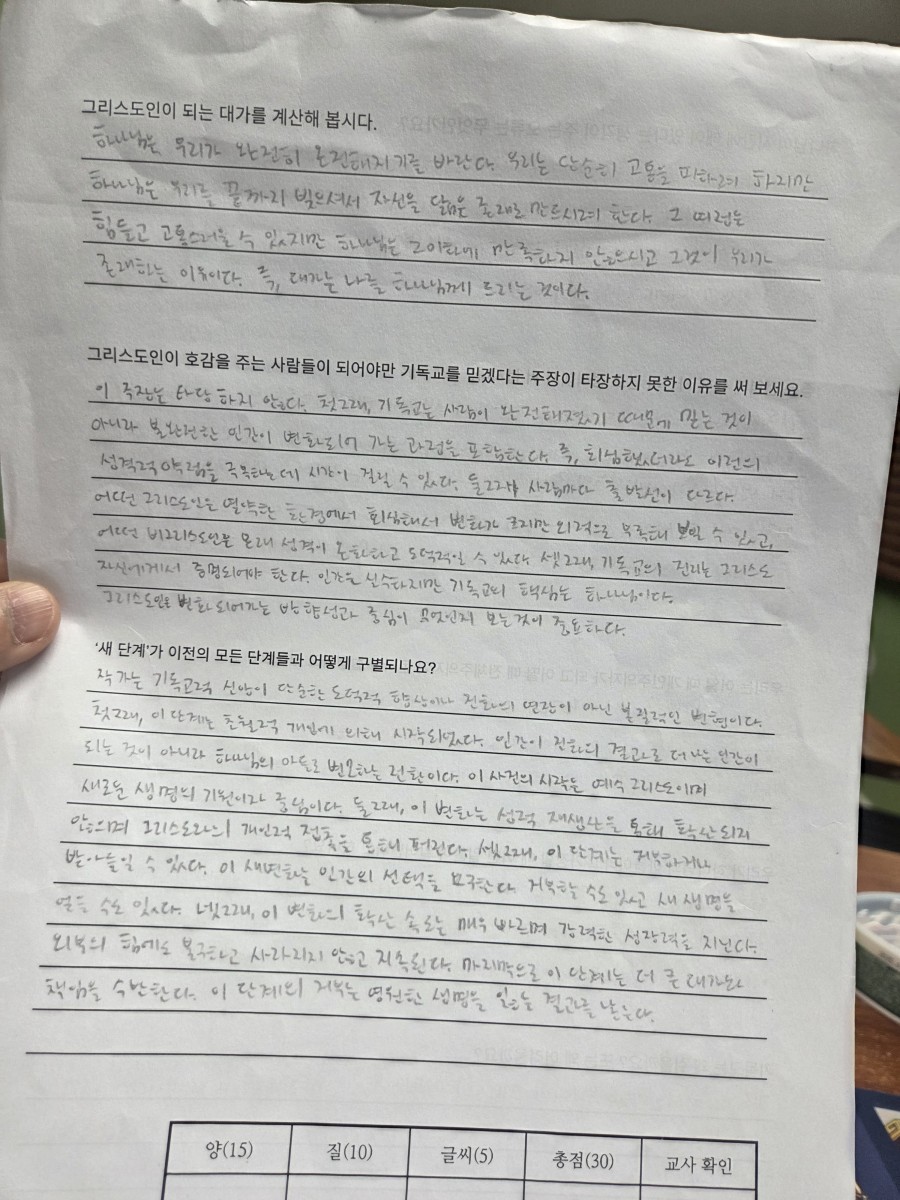 그리스도인이 되는 대가를 계산해 봅시다.
하나님은 우리가 완전히 온전해지기를 바란다. 우리는 단순히 고통을 피하려 하지만
하나님은 우리를 끝까지 빚으셔서 자신을 닮은 존재로 만드시려 한다. 그 과정은
힘들고 고통스러울 수 있지만 하나님은 그 이하에 만족하지 않으시고 그것이 우리가
존재하는 이유이다. 즉, 대가는 나를 하나님께 드리는 것이다.
그리스도인이 호감을 주는 사람들이 되어야만 기독교를 믿겠다는 주장이 타장하지 못한 이유를 써 보세요.
이 주장은 타당하지 않다. 첫째, 기독교는 사람이 완전해졌기 때문에 믿는 것이
아니라 불완전한 인간이 변화되어 가는 과정을 포함한다. 즉, 회심했더라도 이전의
성격적 약점을 극복하는 데 시간이 걸릴 수 있다. 둘째, 사람마다 출발선이 다르다.
어떤 그리스도인은 열악한 환경에서 회심해서 변화가 크지만 외적으로 부족해 보일 수 있고,
어떤 비그리스도인은 본래 성격이 온화하고 도덕적일 수 있다. 셋째, 기독교의 진리는 그리스도
자신에게서 증명되어야 한다. 인간은 실수하지만 기독교의 핵심은 하나님이다.
그리스도인은 변화되어가는 방향성과 중심이 무엇인지 보는 것이 중요하다.
'새 단계'가 이전의 모든 단계들과 어떻게 구별되나요?
작가는 기독교적 신앙이 단순한 도덕적 향상이나 진화의 연장이 아닌 본질적인 변형이다.
첫째, 이 단계는 초월적 개입에 의해 시작되었다. 인간이 진화의 결과로 더 나은 인간이
되는 것이 아니라 하나님의 아들로 변모하는 전환이다. 이 사건의 시작은 예수 그리스도이며
새로운 생명의 기원이자 중심이다. 둘째, 이 변화는 성적 재생산을 통해 확산되지
않으며 그리스도와의 개인적 접촉을 통해 퍼진다. 셋째, 이 단계는 거부하거나
받아들일 수 있다. 이 새변화는 인간의 선택을 요구한다. 거부할 수도 있고 새 생명을
얻을 수도 있다. 넷째, 이 변화의 확산 속도는 매우 빠르며 강력한 성장력을 지닌다.
외부의 힘에도 불구하고 사라지지 않고 지속된다. 마지막으로 이 단계는 더 큰 대가와
책임을 수반한다. 이 단계의 거부는 영원한 생명을 잃는 결과를 낳는다.
양(15) 질(10) 글씨(5) 총점(30) 교사 확인